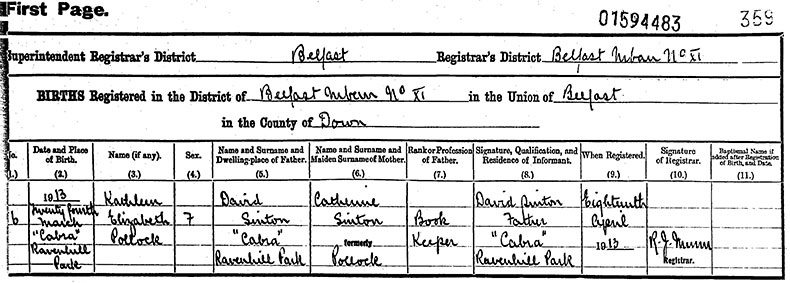 First Page.
01594483 359
Superintendent Registrar's District Belfast Registrar's District Belfast Urban No XI
BIRTHS Registered in the District of Belfast Urban No XI in the Union of Belfast
in the County of Down
No. Date and Place of Birth. Name (if any). Sex. Name and Surname and Dwelling-place of Father. Name and Surname and Maiden Surname of Mother. Rank or Profession of Father. Signature, Qualification, and Residence of Informant. When Registered. Signature of Registrar. Baptismal Name if added after Registration of Birth, and Date.
(1.) (2.) (3.) (4.) (5.) (6.) (7.) (8.) (9.) (10.) (11.)
1913 Kathleen David Catherine David Sinton Eighteenth
Twenty fourth
6 March Elizabeth F Sinton Sinton Book Father April
"Cabra" Pollock "Cabra" formerly Keeper "Cabra" 1913 R. J.
Ravenhill Park Ravenhill Park Pollock Ravenhill Park Registrar.